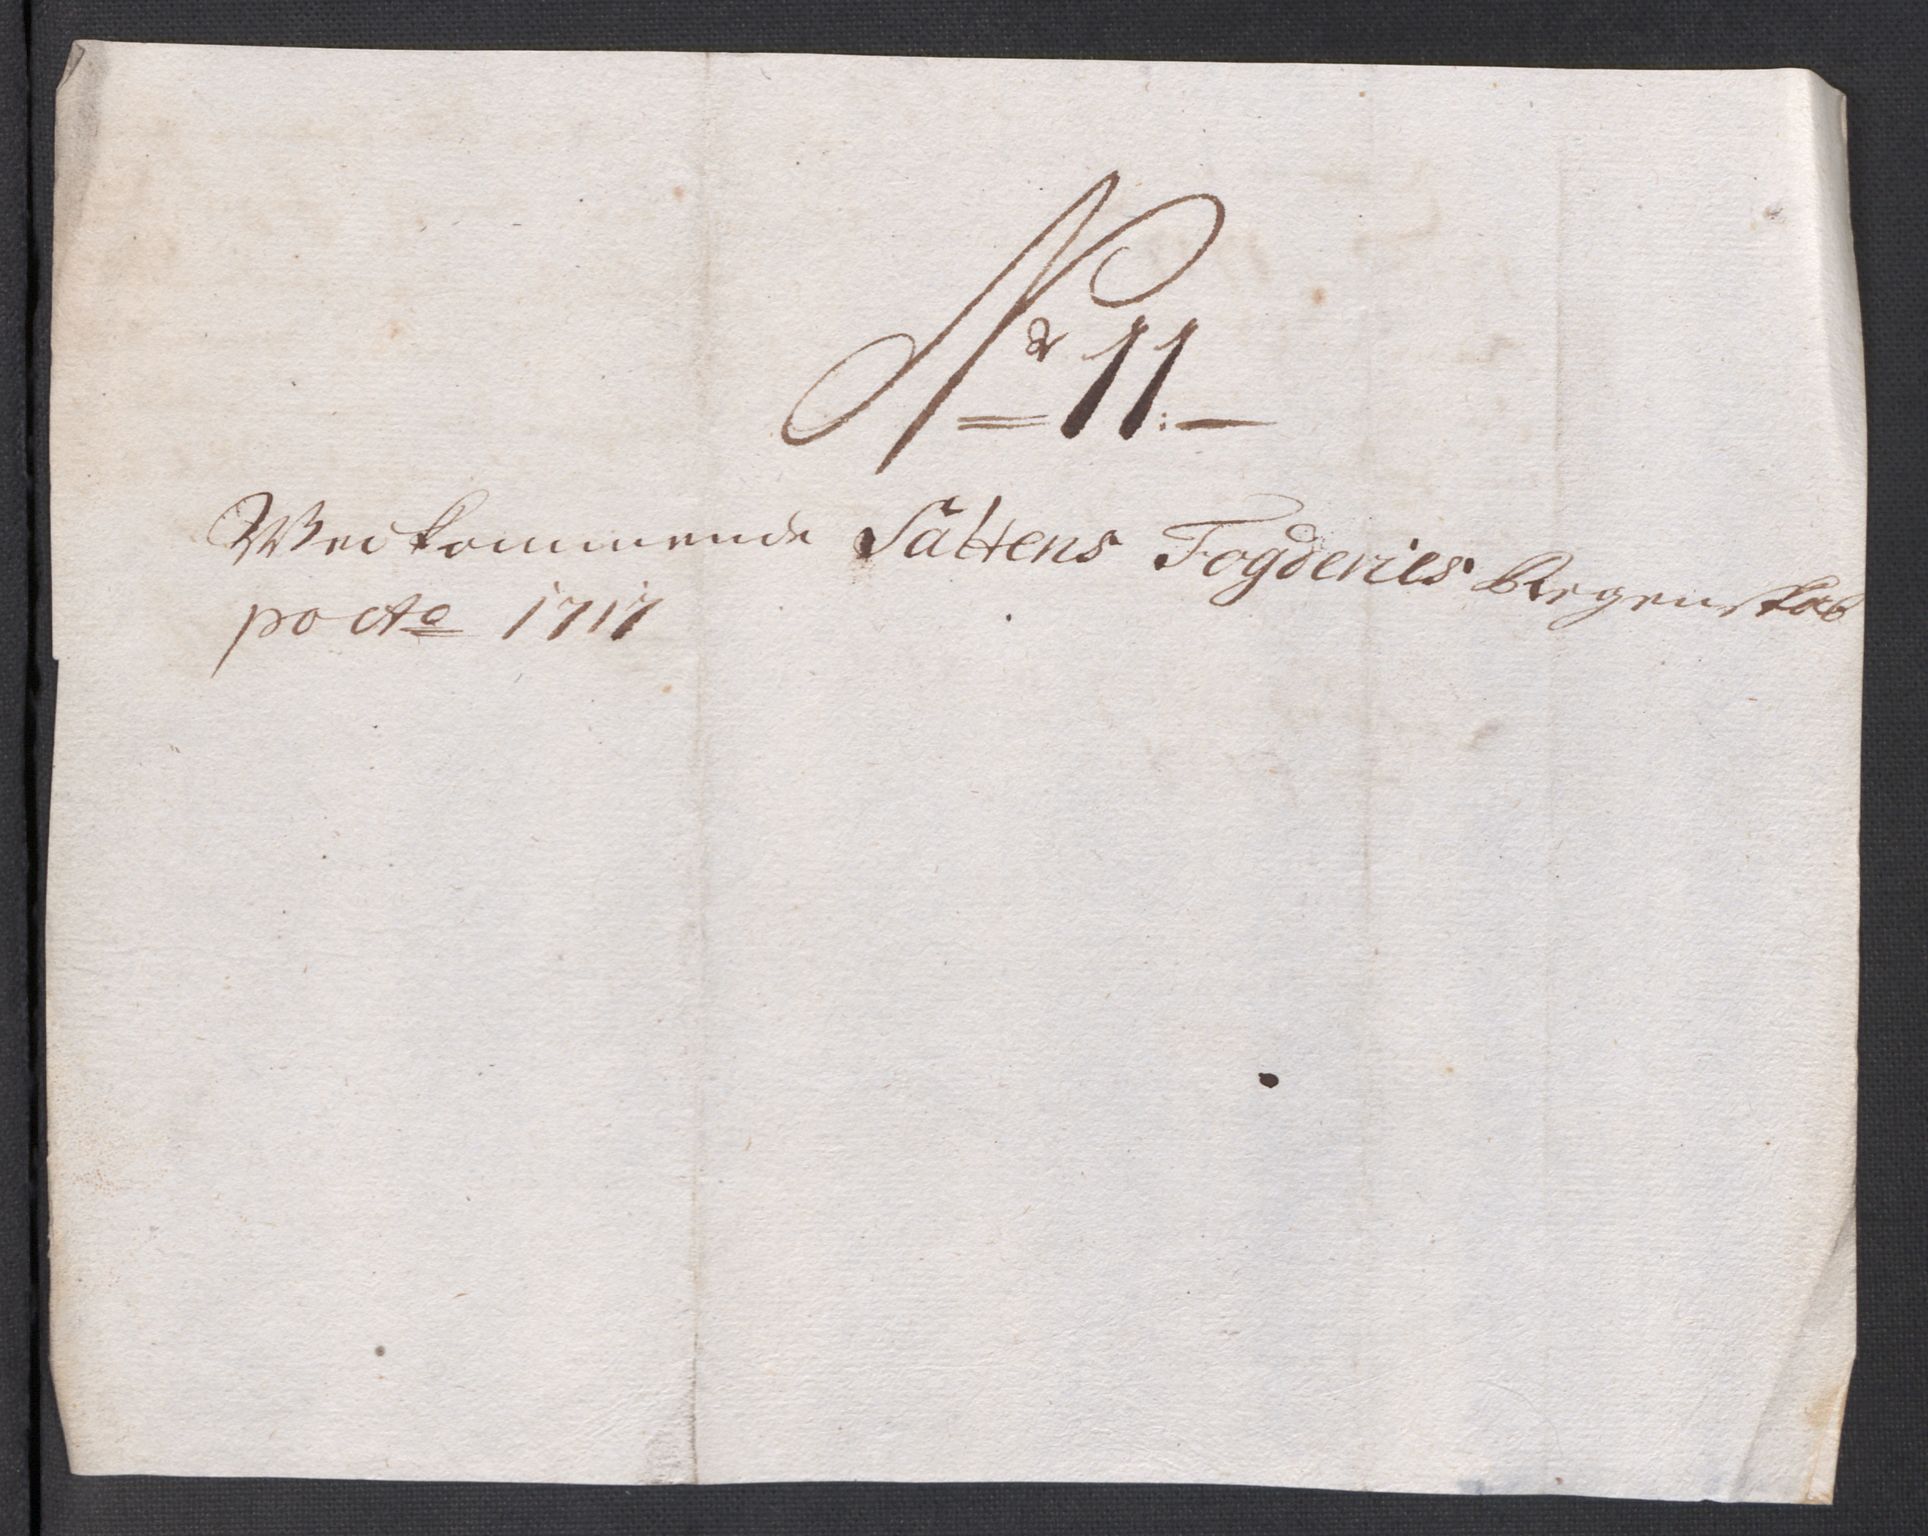 Nr 11:
Wedkommende Saltens Fogderies Regenskab
pro Ao 1717